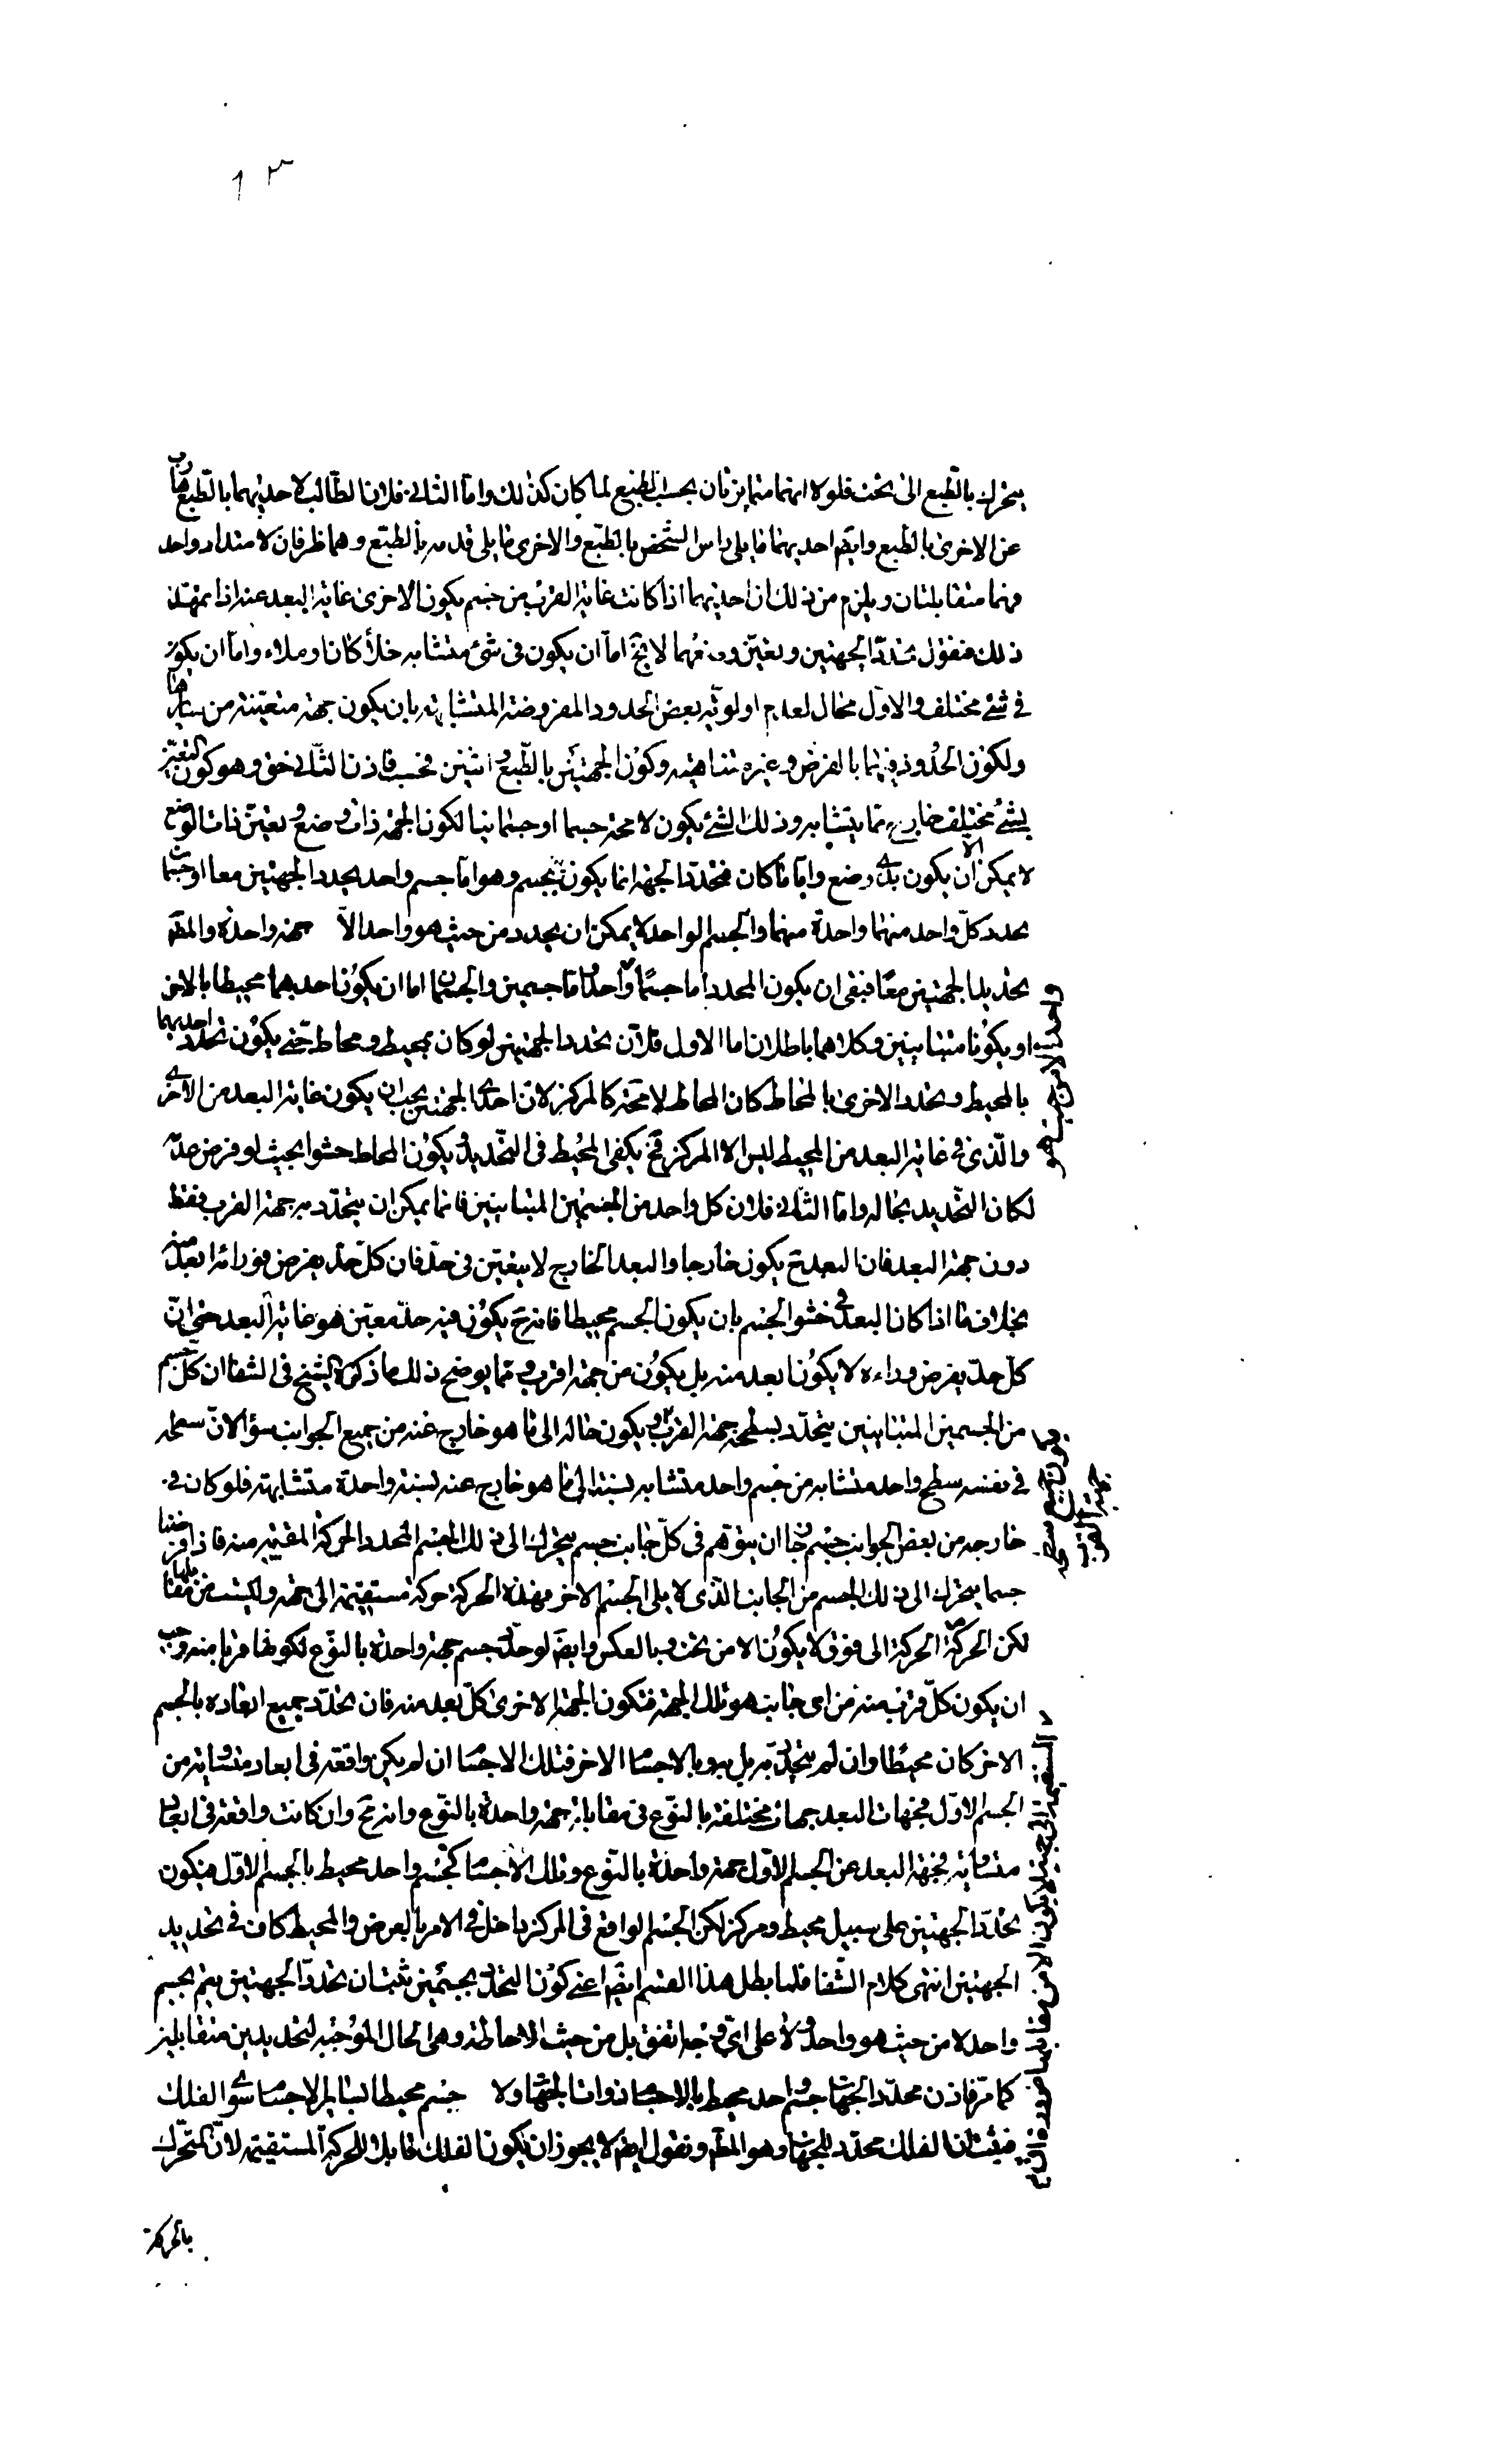 يتحرك بالطبع الى تحت فلولا انهما متمايزتان بحسب الطبع لما كان كذلك واما الثانى فلان الطالب لاحديهما بالطبع هارب
عن الاخرى بالطبع وايضا احديهما ما يلى راس الشخص بالطبع والاخرى ما يلى قدمه بالطبع وهما طرفان لامتداد واحد
فهما متقابلتان ويلزم من ذلك ان احديهما اذا كانت غاية القرب من جسم يكون الاخرى غاية البعد عنه اذا تمهد
ذلك فنقول تحدد الجهتين وتعين وضعهما لا يخ اما ان يكون فى شئ متشابه خلأ كان او ملاء واما ان يكون
فى شئ مختلف والاول محال لعدم اولوية بعض الحدود المفروضة المتشابهة بان يكون جهة متعينة من سايرها
ولكون الحدود فيهما بالفرض وغير متناهية وكون الجهتين بالطبع اثنين فحسب فاذن الثانى حق وهو كون التعين
بشئ مختلف خارج مما يتشابه وذلك الشئ يكون لا محة جسما او جسمانيا لكون الجهة ذات وضع وتعين ذات الوضع
لا يمكن ان يكون الا بذى وضع واياما كان فتحدد الجهة انما يكون بجسم وهو اما جسم واحد يحدد الجهتين معا او جسمان
يحدد كل واحد منهما واحدة منهما والجسم الواحد لا يمكن ان يحدد من حيث هو واحد الا جهة واحدة والمط
تحديد الجهتين معا فبقى ان يكون المحدد اما جسما واحدا واما جسمين والجسمان اما ان يكون احدهما محيطا بالاخر
واحدا لا من حيث هو
او يكونا متباينين وكلاهما باطلان اما الاول فلان تحدد الجهتين لو كان بمحيط ومحاط حتى يكون تحدد احديهما
بالمحيط وتحدد الاخرى بالمحاط كان المحاط لا محة كالمركز لان احدى الجهتين يجب ان يكون غاية البعد من الاخرى
والذى فى غاية البعد من المحيط ليس الا المركز فح يكفى المحيط فى التحديد ويكون المحاط حشوا بحيث لو فرض عدمه
لكان التحديد بحاله واما الثانى فلان كل واحد من الجسمين المتباينين فانما يمكن ان يتحدد به جهة القرب فقط
دون جهة البعد فان البعد ح يكون خارجا والبعد الخارج لا يتعين فى حد فان كل حد يفرض فورائه ابعد منه
بخلاف ما اذا كان البعد فى حشو الجسم بان يكون الجسم محيطا فانه ح يكون فيه حد معين هو غاية البعد حتى ان
كل حد يفرض وراءه لا يكون ابعد منه بل يكون من جهة اقرب ومما يوضح ذلك ما ذكره الشيخ فى الشفا ان كل جسم
من الجسمين المتباينين يتحدد بسطحه جهة القرب ويكون حاله الى ما هو خارج عنه من جميع الجوانب سواء لان سطحه
فى نفسه سطح واحد متشابه من جسم واحد متشابه نسبته الى ما هو خارج عنه نسبة واحدة متشابهة فلو كان فى
خارجه من بعض الجوانب جسم جاز ان يتوهم فى كل جانب جسم يتحرك الى ذلك الجسم المحدد الحركة المقتربة منه فاذا فرضنا
جسما يتحرك الى ذلك الجسم من الجانب الذى لا يلى الجسم الاخر فهذه الحركة حركة مستقيمة الى جهة وليست من مقابلها
لكن الحركة الى فوق لا يكون الا من تحت وبالعكس وايضا لو حدد جسم جهة واحدة بالنوع لكونها قربا منه وجب
ان يكون كل قرب منه من اى جانب هو تلك الجهة فتكون الجهة الاخرى كل بعد منه فان تحدد جميع ابعاده بالجسم
الاخر كان محيطا وان لم يتحدد به بل به وبالاجسام الاخر فتلك الاجسام ان لم يكن واقعة فى ابعاد متساوية من
الجسم الاول فجهات البعد جهات مختلفة بالنوع فى مقابلة جهة واحدة بالنوع وانه مح وان كانت واقعة فى ابعاد
متساوية فجهة البعد عن الجسم الاول جهة واحدة بالنوع وتلك الاجسام كجسم واحد محيط بالجسم الاول فيكون
تحدد الجهتين على سبيل محيط ومركز لكن الجسم الواقع فى المركز داخل فى الامر بالعرض والمحيط كاف فى تحديد
الجهتين انتهى كلام الشفا فلما بطل هذا القسم ايضا اعنى كون التحدد بجسمين ثبت ان تحدد الجهتين يتم بجسم
واحد لا من حيث هو واحد ولا على اى وجه اتفق بل من حيث الاحاطة وهى الحال الموجبة لتحديدين متقابلين
كما مر فاذن محدد الجهات جسم واحد محيط بالاجسام ذوات الجهات ولا جسم محيطا بساير الاجسام سوى الفلك
فيثبت ان الفلك محدد للجهات وهو المط ونقول ايضا لا يجوز ان يكون الفلك قابلا للحركة المستقيمة لان المتحرك
بالحركة